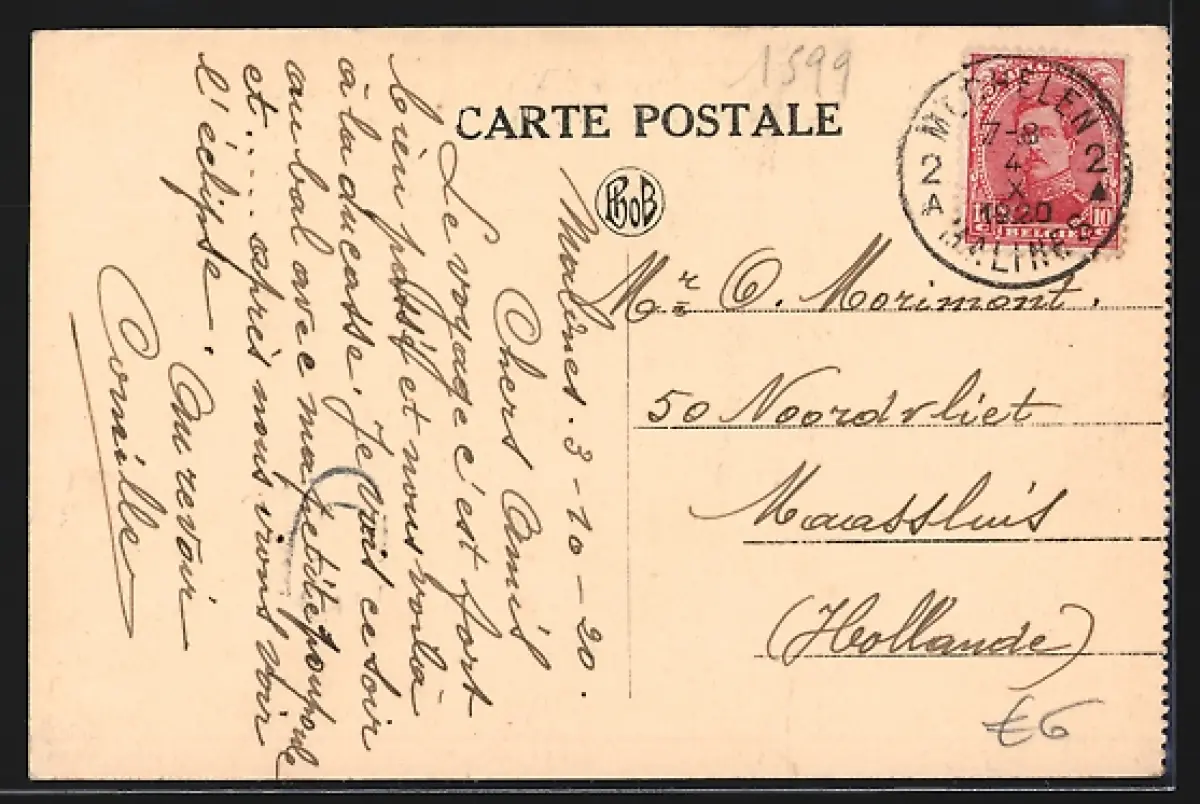 1599
CARTE POSTALE
PhoB
MECHELEN
7-8
4
X
1920
2 2
A
MALINES
10 c 10 c
BELGIE
Malines. 3-10-20.
Chers Amis
Le voyage c'est fort
bien passé et nous voilà
à la ducasse. Je vais ce soir
au bal avec ma petite poupoule
et..... après nous irons voir
l'éclipse.
Au revoir
Cornille
Mr O. Morimont.
50 Noordvliet
Maassluis
(Hollande)
€6